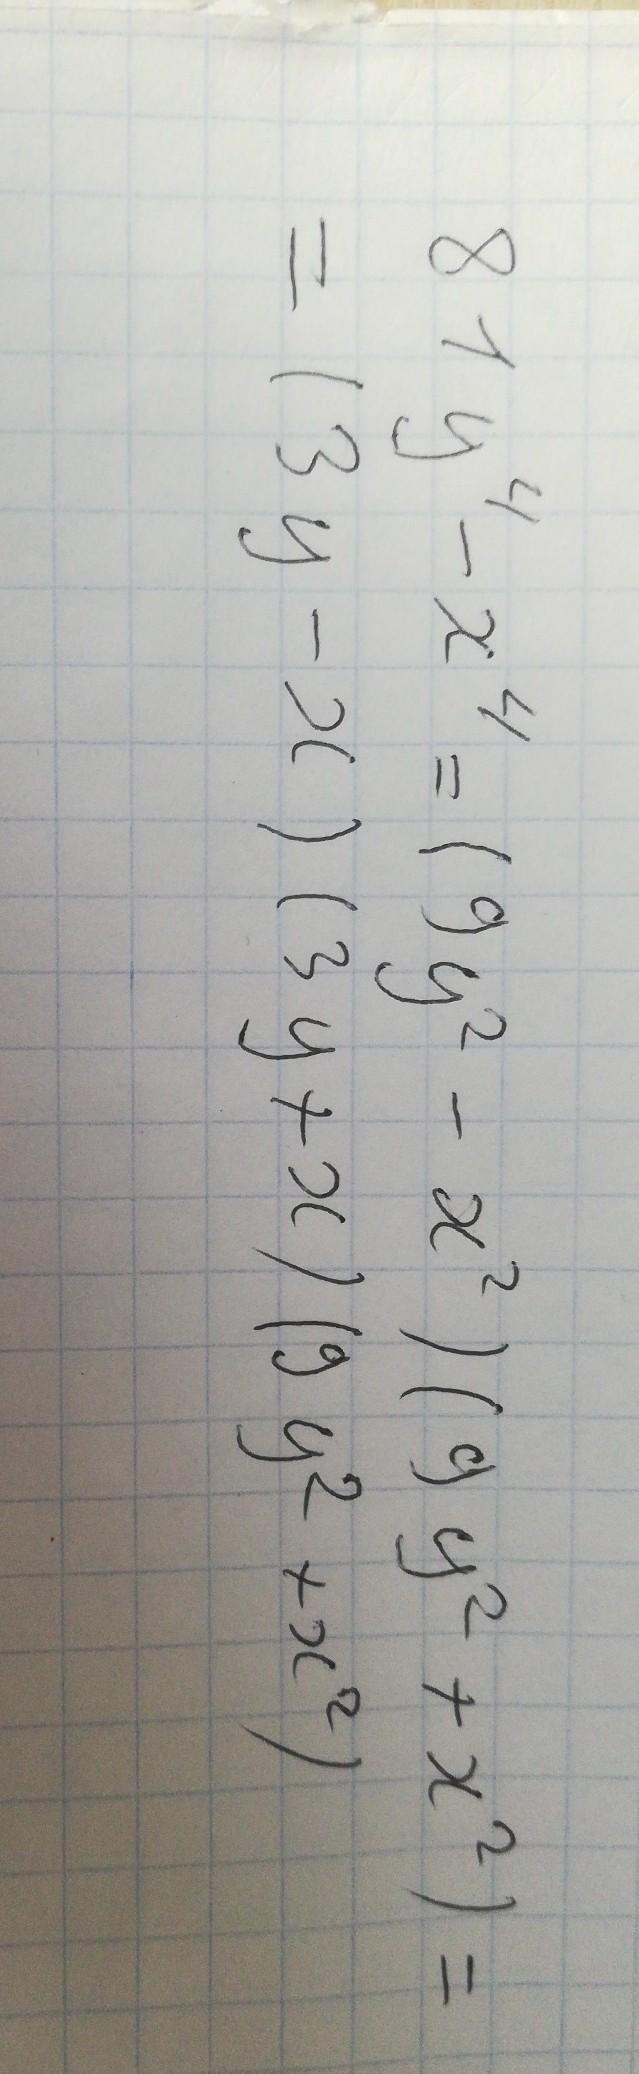 81y⁴-x⁴=(9y²-x²)(9y²+x²)=
=(3y-x)(3y+x)(9y²+x²)